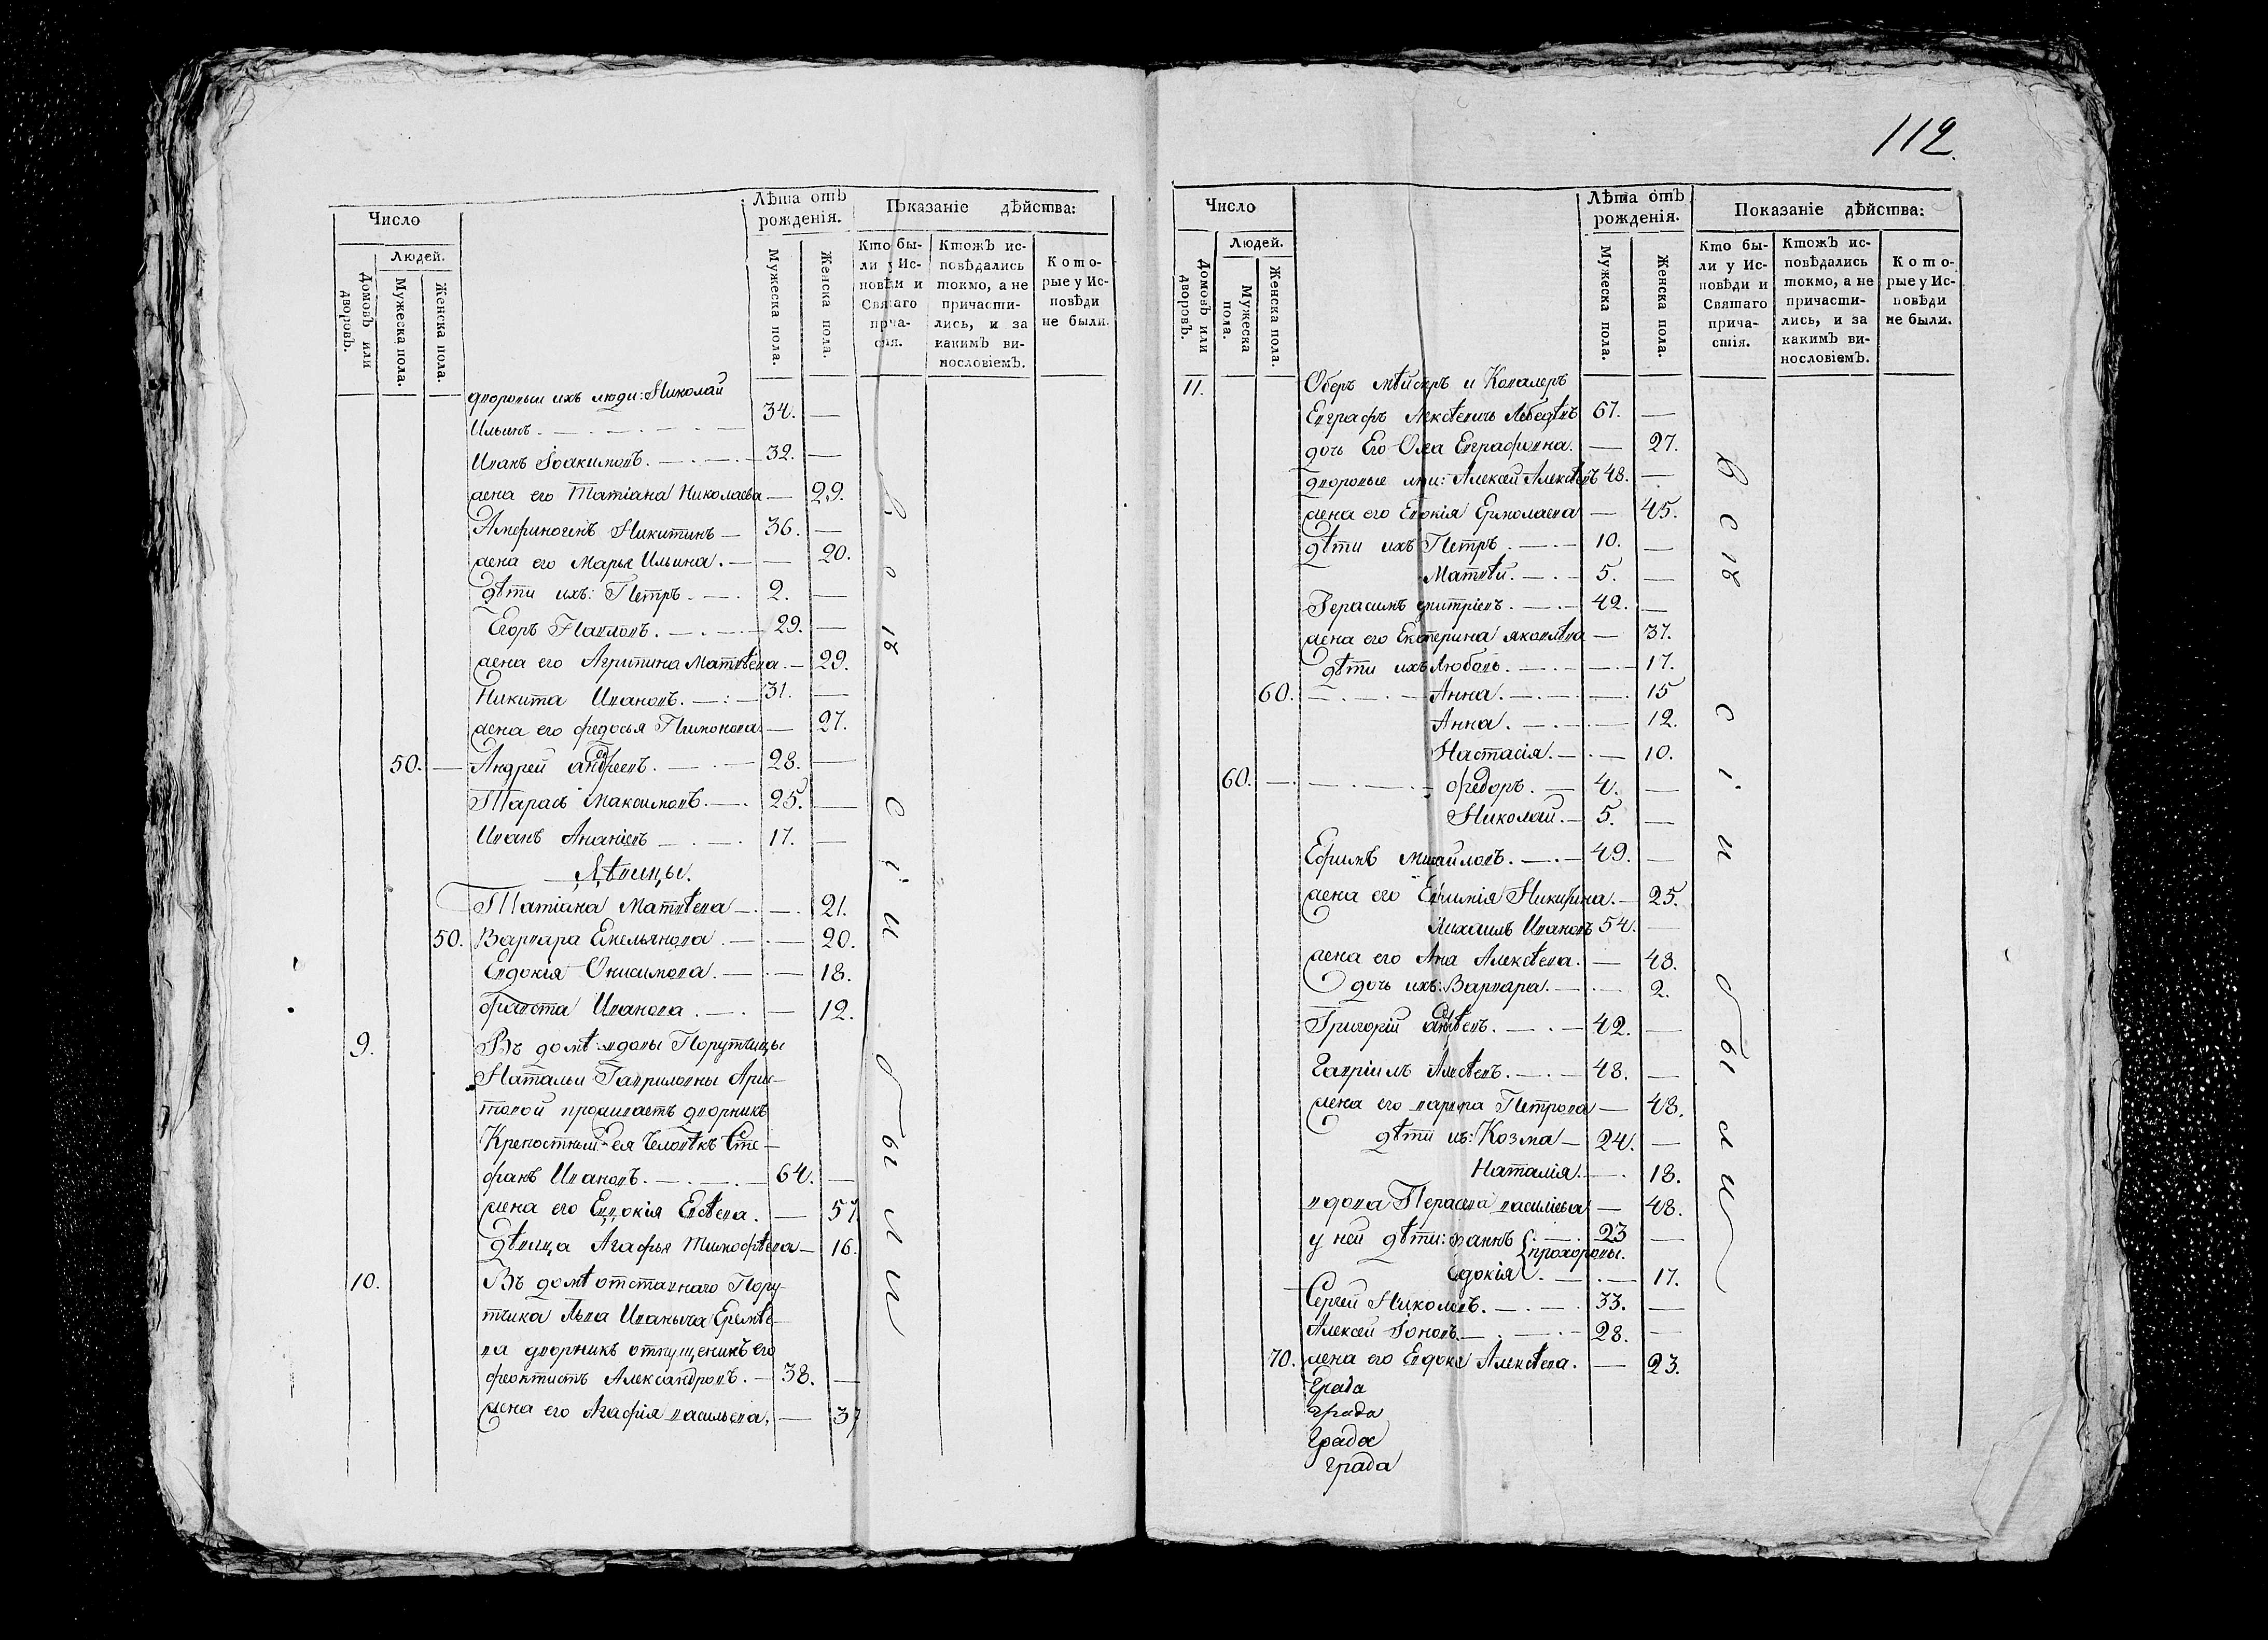 Число
Людей.
Домовъ или дворовъ.
Мужеска пола.
Женска пола.
Лѣта отъ рожденія.
Мужеска пола.
Женска пола.
Показаніе дѣйства:
Кто бы-
ли у Ис-
повѣди и
Святаго
прча-
стія.
Ктожъ ис-
повѣдались
токмо, а не
причасти-
лись, и за
какимъ ви-
нословіемъ.
Кото-
рые у Ис-
повѣди
не были.
дворовыи ихъ люди: Николай
Ильинъ. 34. —
Иванъ Іоакимовъ. 32. —
жена его Татіана Николаева — 29.
Никитинъ — 36. —
жена его Марья Ильина. — 20.
дѣти ихъ: Петръ. 2. —
Егоръ Павловъ. 29. —
жена его Агрипина Матвѣева. — 29.
Никита Ивановъ. 31. —
жена его федосья — 27.
50. — Андрей андреевъ. 28. —
Тарасъ Максимовъ. 25. —
Иванъ Ананіевъ 17. —
Дѣвицы.
Татіана Матвѣева — 21.
50. Варвара Емельянова — 20.
Евдокія Онисимова. — 18.
Ѳавста Иванова — 12.
9. Въ домѣ вдовы Порутчицы
Натальи Гавриловны Арис-
товой проживаетъ дворникъ
Крепостный ея Человѣкъ Сте-
фанъ Ивановъ. 64. —
жена его Евдокія Евсѣева. — 57.
дѣвица Агафья Тимофѣева — 16.
10. Въ домѣ отставнаго Пору-
тчика Льва Иваныча Еремѣе-
ва дворникъ отпущеникъ его
феоктистъ Александровъ. — 38. —
жена его Агафія васильева, — 37
Всѣ сіи были
112.
Число
Людей.
Домовъ или дворовъ.
Мужеска пола.
Женска пола.
Лѣта отъ рожденія.
Мужеска пола.
Женска пола.
Показаніе дѣйства:
Кто бы-
ли у Ис-
повѣди и
Святаго
прича-
стія.
Ктожъ ис-
повѣдались
токмо, а не
причасти-
лись, и за
какимъ ви-
нословіемъ.
Кото-
рые у Ис-
повѣди
не были.
11. Оберъ и Кавалеръ
Евграфъ Алексѣевичь Лебедѣвъ 67. —
дочь Его Олга Евграфовна. — 27.
дворовые люди: Алексей Алексѣевъ 48. —
жена его Евдокія Ермолаева — 45.
дѣти ихъ Петръ. 10. —
Матвѣй. 5. —
Герасимъ дмитріевъ. 42. —
жена его Екатерина яковлева — 37.
дѣти ихъ Любовь. — 17.
60. Анна. — 15
Анна. — 12.
Настасія. — 10.
60. — федоръ. 4. —
Николай. 5. —
Ефимъ михайловъ. 49. —
жена его Никитина. — 25.
Михаилъ Ивановъ 54. —
жена его Анна Алексѣева. — 48.
дочь ихъ: Варвара. 2.
Григорій 42. —
Гавріилъ Алексѣевъ. 48. —
жена его варвара Петрова — 48.
дѣти ихъ: Козма — 24. —
Наталія. 18.
вдова василіева — 48.
у ней дѣти: 23 —
прохоровы.
Евдокія. — 17.
Сергей Николаевъ. 33. —
Алексей Іоновъ. 28. —
70. жена его Евдокія Алексѣева. — 23.
Града
града
Града
града
Всѣ сіи были